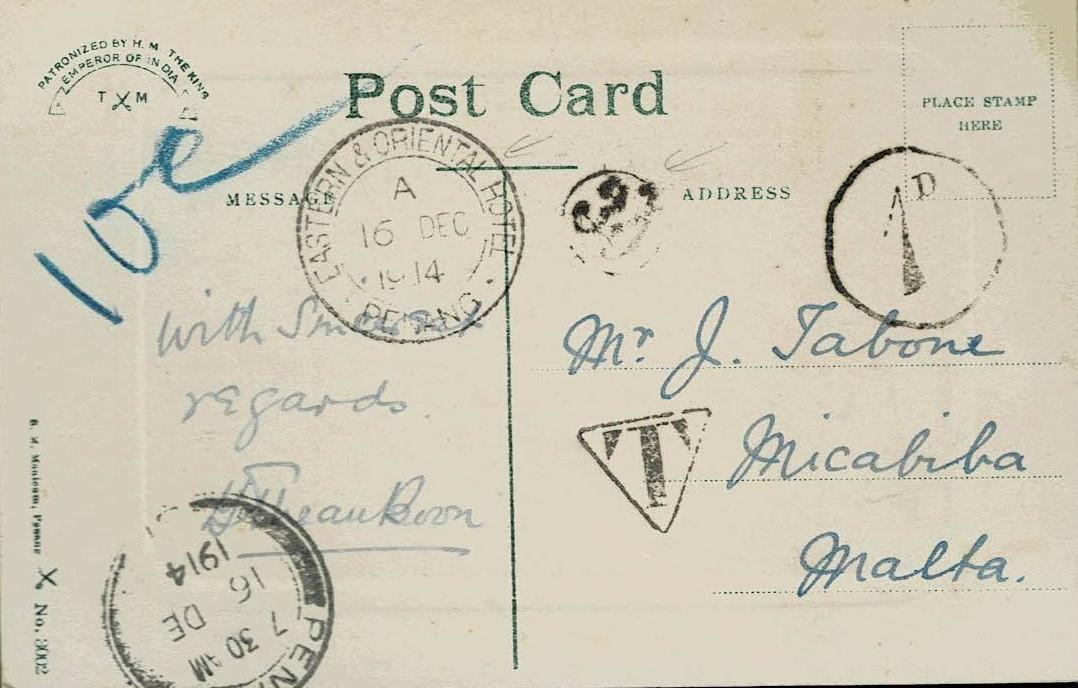 PATRONIZED BY H. M. THE KING
EMPEROR OF INDIA
T M
Post Card
PLACE STAMP
HERE
MESSAGE
ADDRESS
10c
EASTERN & ORIENTAL HOTEL
A
16 DEC
1914
PENANG
1D
With Sincerest
regards.
Mr J. Tabone
Micabiba
Malta.
T
PEN
7 30 AM
16 DE
1914
No. 3002